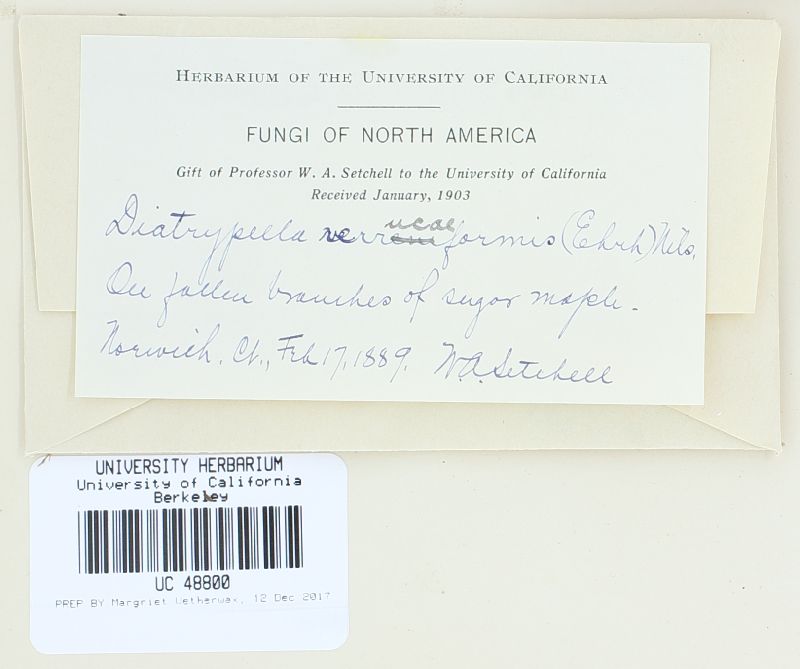 HERBARIUM OF THE UNIVERSITY OF CALIFORNIA
FUNGI OF NORTH AMERICA
Gift of Professor W. A. Setchell to the University of California
Received January, 1903
Diatrypella verrucaeformis (Ehrh) Nits.
On fallen branches of sugar maple.
Norwich, Ct., Feb 17, 1889. W.A. Setchell
UNIVERSITY HERBARIUM
University of California
Berkeley
UC 48800
PREP BY Margriet Wetherwax, 12 Dec 2017